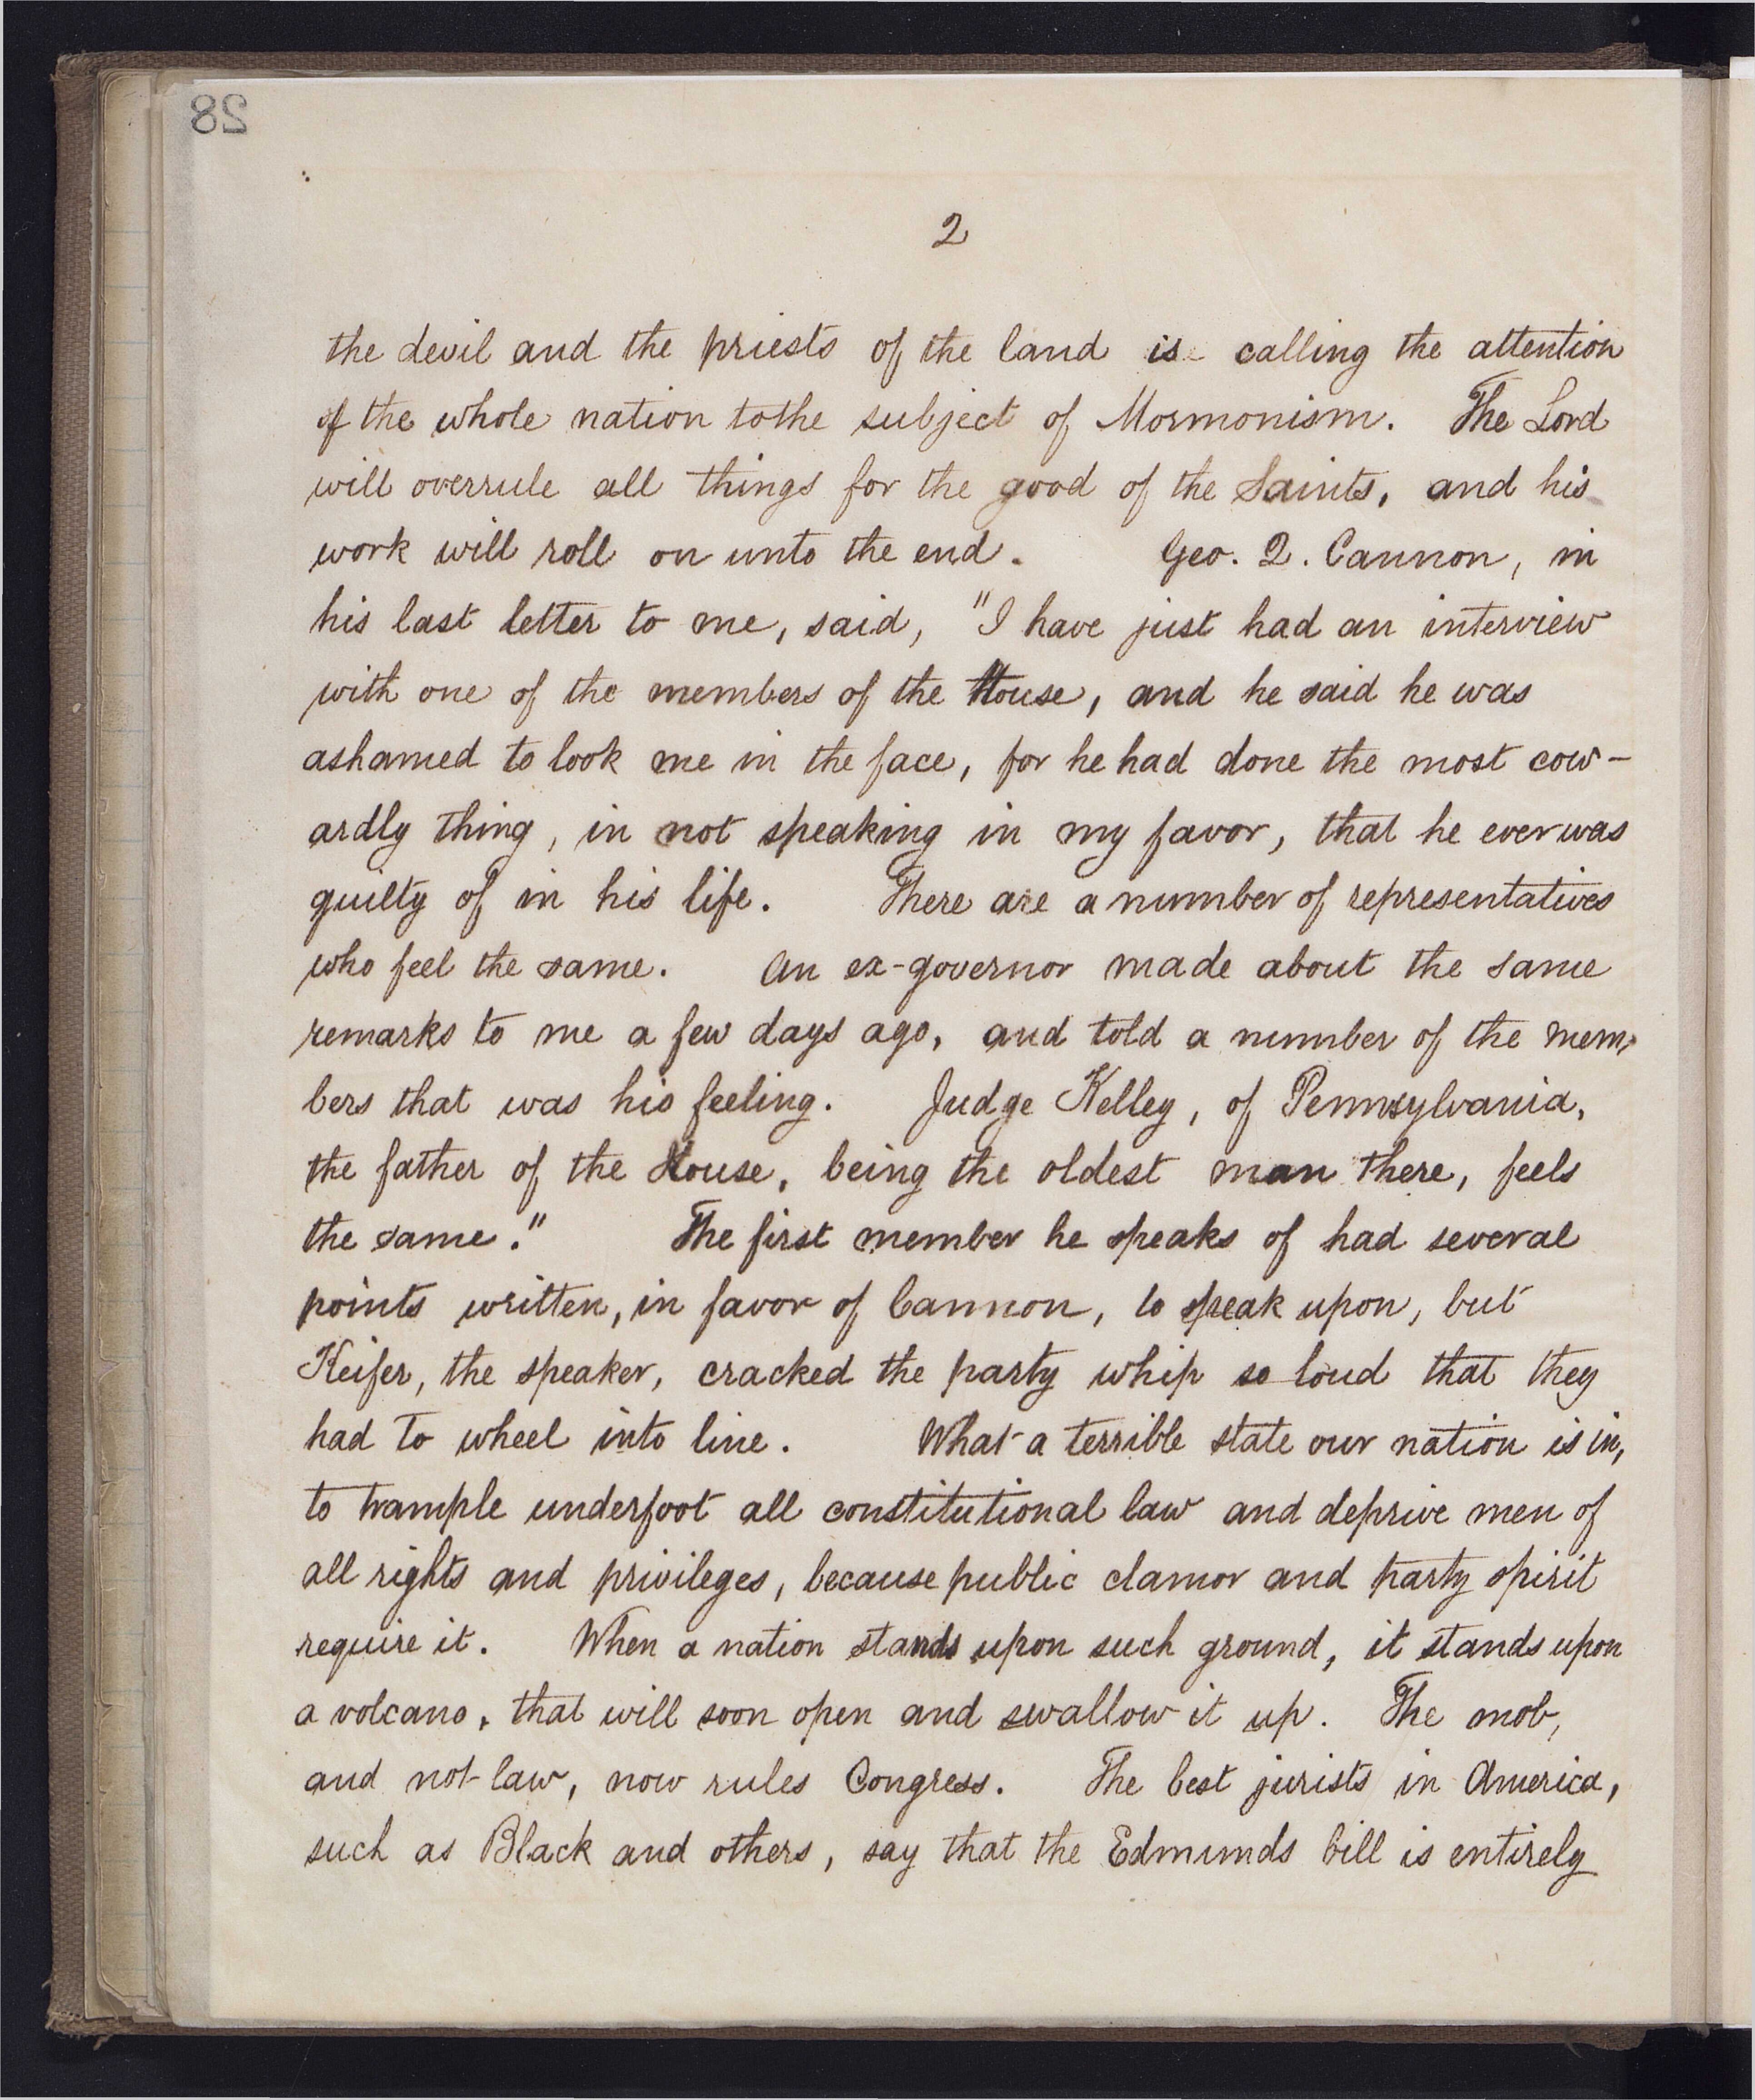 28
2
the devil and the priests of the land is calling the attention
of the whole nation to the subject of Mormonism. The Lord
will overrule all things for the good of the Saints, and his
work will roll on unto the end. Geo. Q. Cannon, in
his last letter to me, said, "I have just had an interview
with one of the members of the House, and he said he was
ashamed to look me in the face, for he had done the most cow-
ardly thing, in not speaking in my favor, that he ever was
guilty of in his life. There are a number of representatives
who feel the same. An ex-governor made about the same
remarks to me a few days ago, and told a number of the mem-
bers that was his feeling. Judge Kelley, of Pennsylvania,
the father of the House, being the oldest man there, feels
the same." The first member he speaks of had several
points written, in favor of Cannon, to speak upon, but
Keifer, the speaker, cracked the party whip so loud that they
had to wheel into line. What a terrible state our nation is in,
to trample underfoot all constitutional law and deprive men of
all rights and privileges, because public clamor and party spirit
require it. When a nation stands upon such ground, it stands upon
a volcano, that will soon open and swallow it up. The mob,
and not law, now rules Congress. The best jurists in America,
such as Black and others, say that the Edmunds bill is entirely